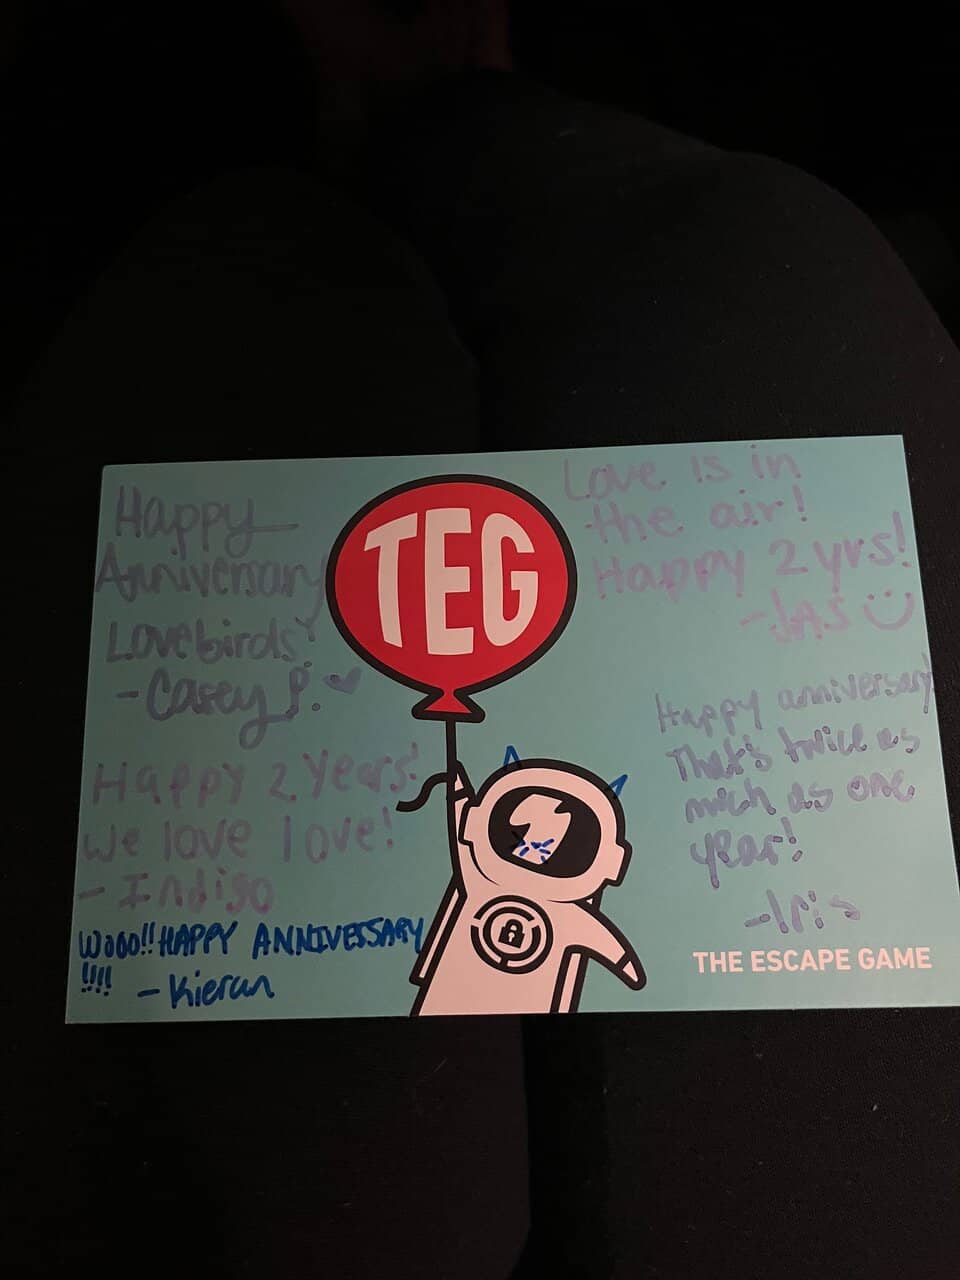 Happy
Anniversary
Lovebirds
- Casey P.
Happy 2 Years!
We love love!
- Indigo
Wooo!! HAPPY ANNIVERSARY
!!!!
- Kieran
TEG
Love is in
the air!
Happy 2 yrs!
- JAS
Happy anniversary!
That's twice as
much as one
year!
- Iris
THE ESCAPE GAME